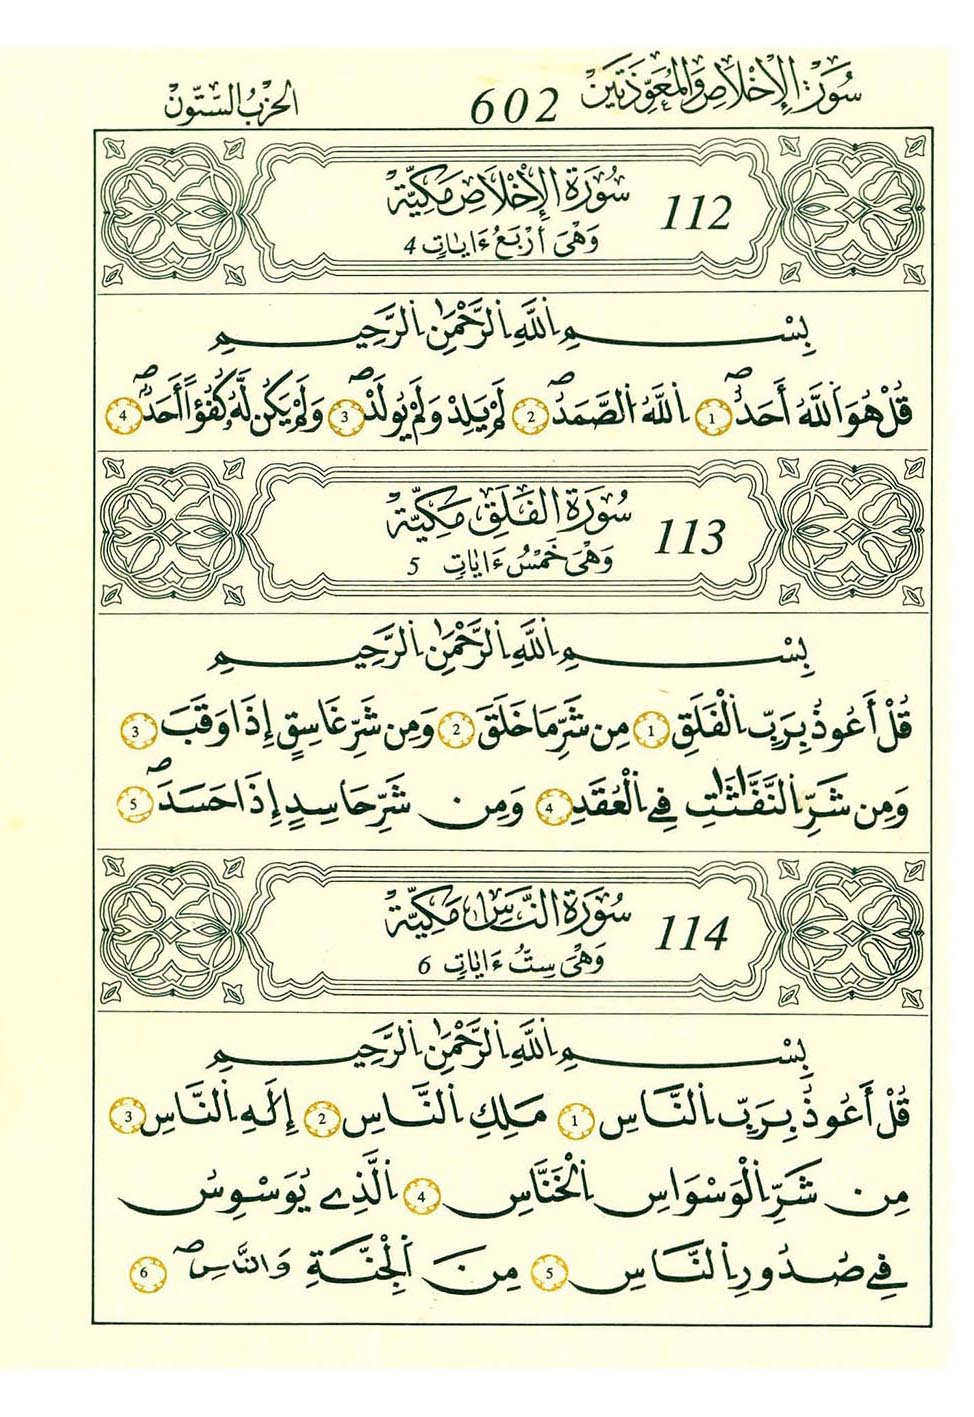 سُورَةُ الإِخْلَاصِ وَالْمُعَوِّذَتَيْنِ 602 الحِزْبُ السِّتُّونَ
سُورَةُ الإِخْلَاصِ مَكِّيَّةٌ 112
وَهْيَ أَرْبَعُ ءَايَاتٍ 4
بِسْمِ اِللَّهِ اِلرَّحْمَٰنِ اِلرَّحِيمِ
قُلْ هُوَ اَللَّهُ أَحَدٌ 1 اَللَّهُ اُلصَّمَدُ 2 لَمْ يَلِدْ وَلَمْ يُولَدْ 3 وَلَمْ يَكُن لَّهُۥ كُفُؤاً اَحَدٌ 4
سُورَةُ الفَلَقِ مَكِّيَّةٌ 113
وَهْيَ خَمْسُ ءَايَاتٍ 5
بِسْمِ اِللَّهِ اِلرَّحْمَٰنِ اِلرَّحِيمِ
قُلْ أَعُوذُ بِرَبِّ اِلْفَلَقِ 1 مِن شَرِّ مَا خَلَقَ 2 وَمِن شَرِّ غَاسِقٍ إِذَا وَقَبَ 3
وَمِن شَرِّ اِلنَّفَّٰثَٰتِ فِے اِلْعُقَدِ 4 وَمِن شَرِّ حَاسِدٍ إِذَا حَسَدَ 5
سُورَةُ النَّاسِ مَكِّيَّةٌ 114
وَهْيَ سِتُّ ءَايَاتٍ 6
بِسْمِ اِللَّهِ اِلرَّحْمَٰنِ اِلرَّحِيمِ
قُلْ أَعُوذُ بِرَبِّ اِلنَّاسِ 1 مَلِكِ اِلنَّاسِ 2 إِلَٰهِ اِلنَّاسِ 3
مِن شَرِّ اِلْوَسْوَاسِ اِلْخَنَّاسِ 4 اِلَّذِے يُوَسْوِسُ
فِے صُدُورِ اِلنَّاسِ 5 مِنَ اَلْجِنَّةِ وَالنَّاسِ 6